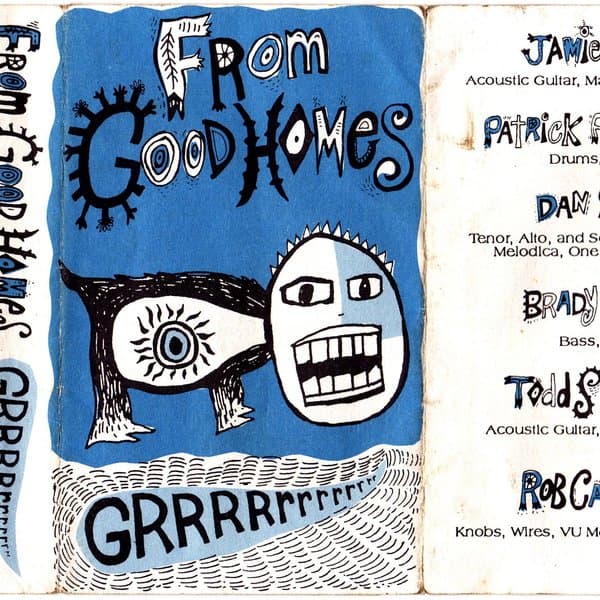 From Good Homes
GRRRRrrrrrrr
From
Good Homes
GRRRRrrrrrrrr
Jamie
Acoustic Guitar, Ma
Patrick
Drums,
Dan
Tenor, Alto, and S
Melodica, One
Brady
Bass,
Todd S
Acoustic Guitar,
Rob Ca
Knobs, Wires, VU M